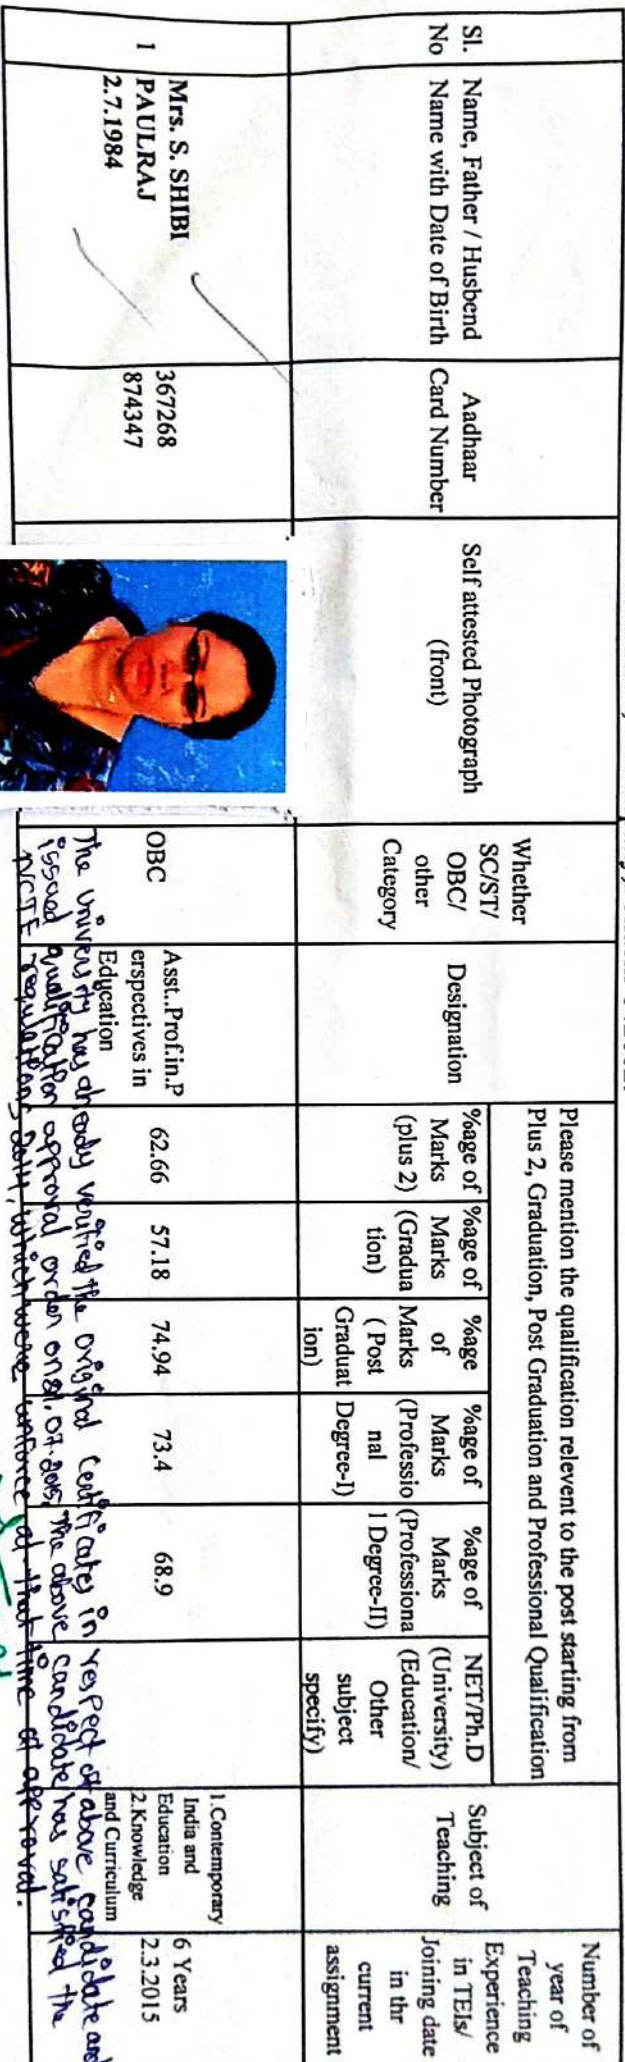 Sl.
No
Name, Father / Husbend
Name with Date of Birth
Aadhaar
Card Number
Self attested Photograph
(front)
Whether
SC/ST/
OBC/
other
Category
Designation
Please mention the qualification relevent to the post starting from
Plus 2, Graduation, Post Graduation and Professional Qualification
%age of
Marks
(plus 2)
%age of
Marks
(Gradua
tion)
%age
of
Marks
( Post
Graduat
ion)
%age of
Marks
(Professio
nal
Degree-I)
%age of
Marks
(Professiona
l Degree-II)
NET/Ph.D
(University)
(Education/
Other
subject
specify)
Subject of
Teaching
Number of
year of
Teaching
Experience
in TEIs/
Joining date
in thr
current
assignment
1
Mrs. S. SHIBI
PAULRAJ
2.7.1984
367268
874347
OBC
Asst..Prof.in.P
erspectives in
Education
62.66
57.18
74.94
73.4
68.9
1.Contemporary
India and
Education
2.Knowledge
and Curriculum
6 Years
2.3.2015
The University has already verified the original Certificates in respect of above candidate and
issued qualification approval order on 31.07.2015, The above candidate has satisfied the
NCTE regulations 2014, which were inforce at that time of approval.